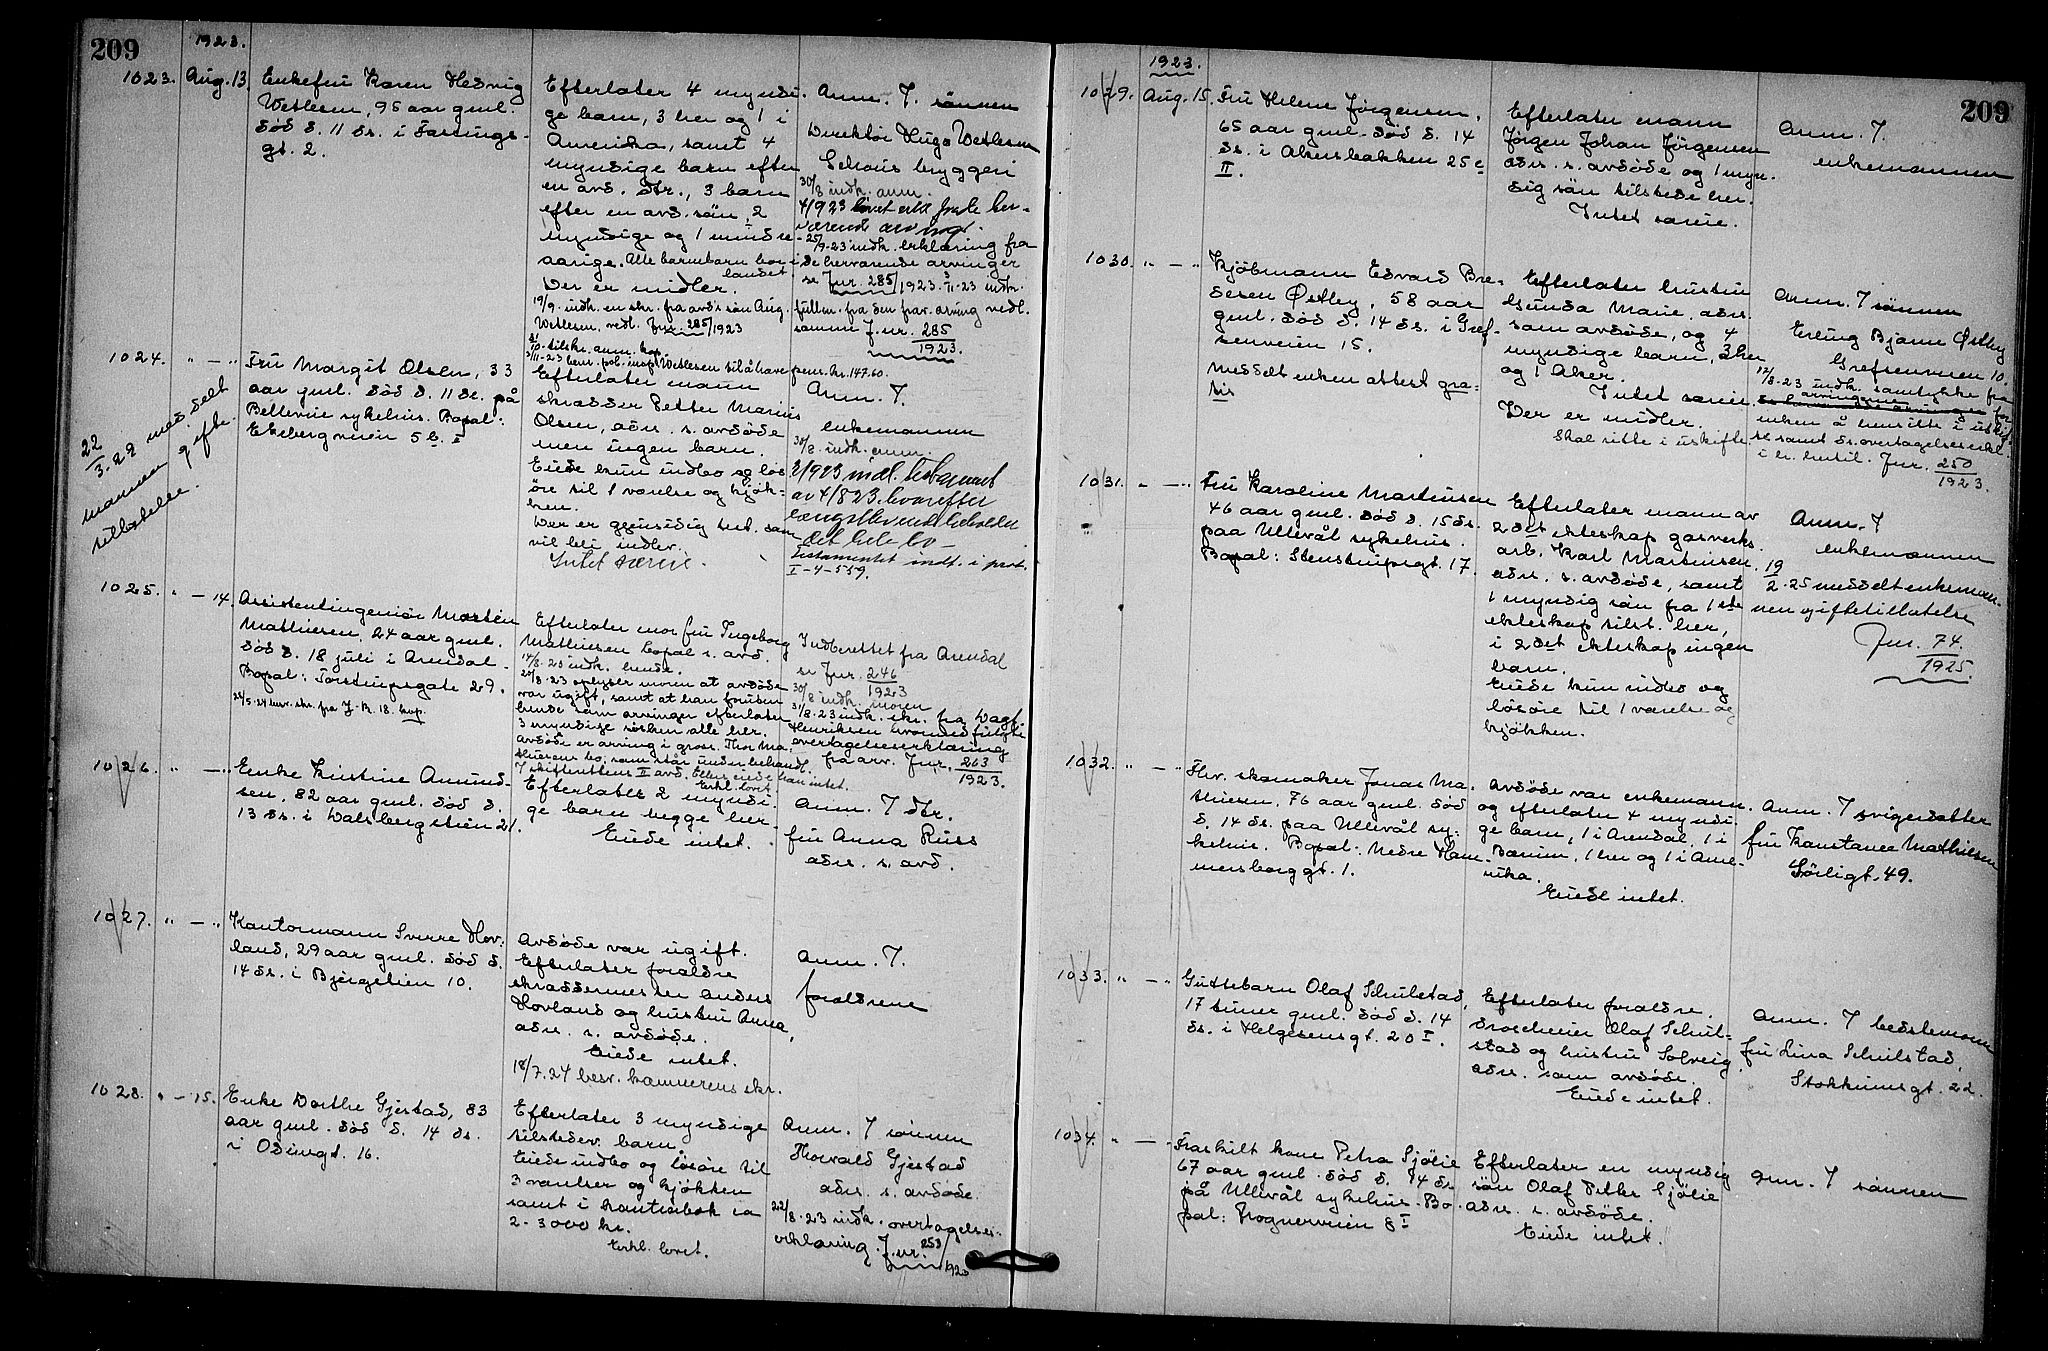 209
1923.
1023. Aug. 13.
Enkefru Karen Hedvig
Wetlesen, 95 aar gml.
död d. 11 ds. i Fossings-
gt. 2.
Efterlater 4 myndi-
ge barn, 3 her og 1 i
Amerika, samt 4
myndige barn efter
en avd. dtr., 3 barn
efter en avd. sön, 2
myndige og 1 mindre-
aarige. Alle barnebarn bor i
landet.
Der er midler.
19/9. indk. en skr. fra avd's sön Aug.
Wetlesen, vedl. Jnr. 285/1923
tilskr. anm. kop.
3/11-23 bem. pol. insp. Wetlesen til å have pens. kr. 147.60.
Anm. 7. sönnen
Direktör Hugo Wetlesen
Schous bryggeri
30/8 indk. anm.
4/923 lovet erkl fra de her-
værende arvinger.
25/9-23 indk. erklæring fra
de herværende arvinger
se Jnr. 285/1923. 3/11-23 indk.
fullm. fra den frav. arving vedl.
samme J.nr. 285/1923.
1024. " — "
Fru Margit Olsen, 33
aar gml. död d. 11 ds. på
Bellevue sykehus. Bopæl:
Ekebergveien 5 b. I
22/3.29 meddelt
mannen gifte-
tilladelse.
Efterlater mann
skrædder Petter Marius
Olsen, adr. s. avdöde
men ingen barn.
Eiede kun indbo og lös-
öre til 1 værelse og kjök-
ken.
Der er gjensidig test. som
vil bli indlev.
Intet særeie.
Anm. 7.
enkemannen
30/8. indk. anm.
3/923 indl. testament
av 4/823 hvorefter
længstlevende beholder
det hele bo —
Testamentet indt. i prot.
I-4-559.
1025. " — 14.
Assistentingeniör Morten
Mathiesen, 24 aar gml.
död d. 18 juli i Arendal.
Bopæl: Sorstrupsgate 29.
24/5.24 besv. skr. fra J. R. 18. kop
Efterlater mor fru Ingeborg
Mathiesen bopæl s. avd.
14/8.23 indk. hende.
20/8.23 oplyser moren at avdöde
var ugift, samt at han foruten
hende som arvinger efterlater
3 myndige sösken alle her.
Avdöde er arving i gross. Thor Ma-
thiesens bo, som står under behandl.
i skifterettens II avd. Ellers eiede han intet.
Erkl. lovet.
Indberettet fra Arendal
se Jnr. 246/1923
30/8 indk. moren
31/8.23 indk. skr. fra Dagf.
Henriksen hvormed fulgte
overtagelseserklæring
fra arv. Jnr. 263/1923.
1026. " — "
Enke Kristine Amund-
sen, 82 aar gml. död d.
13 ds. i Dalsbergstien 21.
Efterlater 2 myndi-
ge barn begge her.
Eiede intet.
Anm. 7 dtr.
fru Anna Russ
adr. s. avd.
1027. " — "
Kontormann Sverre Hov-
land, 29 aar gml. död d.
14 ds. i Bjergstien 10.
Avdöde var ugift.
Efterlater foræld­re
skræddermester Anders
Hovland og hustru Anna,
adr. s. avdöde.
Eiede intet.
18/7.24 besv. kæmnerens skr.
Anm. 7.
forældrene
1028. " — 15.
Enke Dorthe Gjestad, 83
aar gml. död d. 14 ds.
i Odinsgt. 16.
Efterlater 3 myndige
tilstedev. barn.
Eiede indbo og lösöre til
3 værelser og kjökken
samt i kontrabok ca
2-3000 kr.
Erkl. lovet.
Anm. 7 sönnen
Thorvald Gjestad
adr. s. avdöde.
22/8.23 indk. overtagelses-
erklæring. J.nr. 253/1923
1923.
209
1029. Aug. 15.
Fru Helene Jörgensen,
65 aar gml. död d. 14
ds. i Akersbakken 25 c
II.
Efterlater mann
Jörgen Johan Jörgensen
adr. s. avdöde og 1 myn-
dig sön tilstede her.
Intet særeie.
Anm. 7.
enkemannen
1030. " — "
Kjöbmann Edvard Bre-
desen Østby, 58 aar
gml. död d. 14 ds. i Gref-
senveien 15.
Meddelt enken attest gra-
tis
Efterlater hustru
Gunda Marie, adr.
som avdöde, og 4
myndige barn, 3 her
og 1 Aker.
Intet særeie.
Der er midler.
Skal sitte i uskifte
Anm. 7 sönnen
Erling Bjarne Østby
Grefsenveien 10.
17/8.23 indk. samtykke fra
arvingerne
de herværende arvinger for
enken å hensitte i uskif-
te samt ds. overtagelseserkl.
Jnr. 250/1923.
1031. " — "
Fru Karoline Martinsen
46 aar gml. död d. 15 ds.
paa Ullevål sykehus.
Bopæl: Stenstrupsgt. 17.
Efterlater mann av
2det ekteskap gasverks-
arb. Karl Martinsen,
adr. s. avdöde, samt
1 myndig sön fra 1ste
ekteskap tilst. her,
i 2det ekteskap ingen
barn.
Eiede kun indbo og
lösöre til 1 værelse og
kjökken.
Anm. 7
enkemannen
19/2.25 meddelt enkeman-
nen giftetillatelse
Jnr. 74./1925.
1032. " — "
Fhv. skomaker Jonas Ma-
thiesen, 76 aar gml. död
d. 14 ds. paa Ullevål sy-
kehus. Bopæl. Nedre Ham-
mersborggt. 1.
Avdöde var enkemann
og efterlater 4 myndi-
ge barn, 1 i Arendal, 1 i
Bærum, 1 her og 1 i Ame-
rika.
Eiede intet.
Anm. 7 svigerdatter
fru Konstance Mathiesen
Sörligt. 49.
1033. " — "
Guttebarn Olaf Schulstad,
17 timer gml. död d. 14
ds. i Helgesensgt. 20 I.
Efterlater forældre.
droscheeier Olaf Schul-
stad og hustru Solveig,
adr. som avdöde.
Eiede intet.
Anm. 7 bedstemoren
fru Lina Schulstad,
Stokkumsgt. 22.
1034. " — "
Fraskilt kone Petra Sjölie
67 aar gml. död d. 14 ds.
på Ullevål sykehus. Bo-
pæl: Frognerveien 8 I
Efterlater en myndig
sön Olaf Petter Sjölie
adr. s. avdöde.
Eiede intet.
Anm. 7 sönnen
209